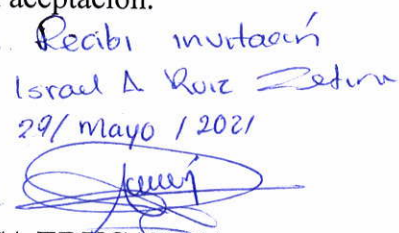 aceptación.
Recibi invitación
Israel A Ruiz Zetina
29/ Mayo / 2021